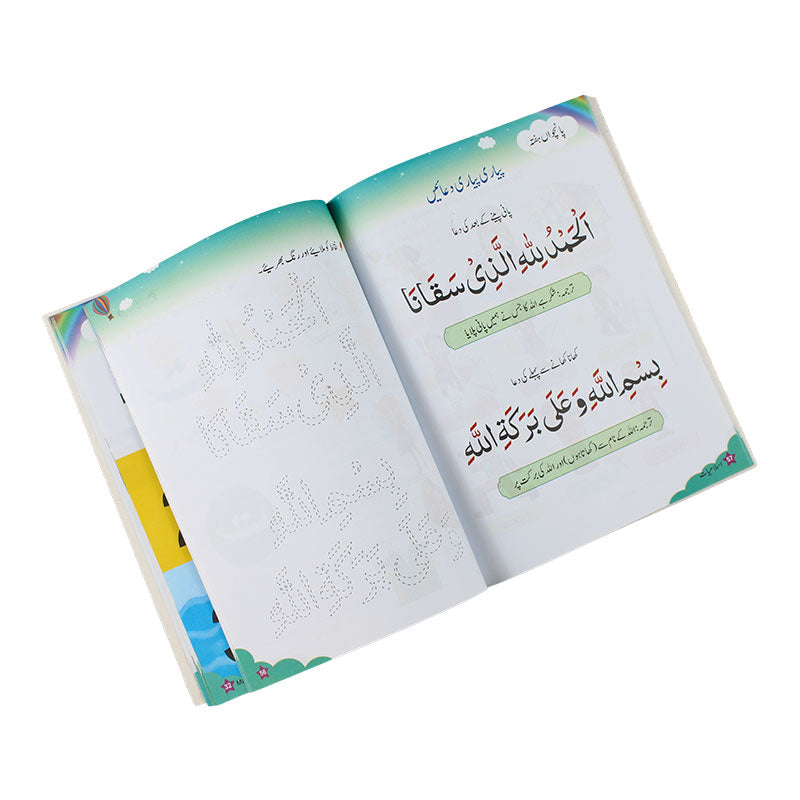 پانچواں ہفتہ
پیاری پیاری دعائیں
پانی پینے کے بعد کی دعا
اَلْحَمْدُ لِلّٰهِ الَّذِیْ سَقَانَا
ترجمہ: شکر ہے اللہ کا جس نے ہمیں پانی پلایا
کھانا کھانے سے پہلے کی دعا
بِسْمِ اللّٰهِ وَ عَلَى بَرَكَةِ اللّٰهِ
ترجمہ: اللہ کے نام سے (کھاتا ہوں) اور اللہ کی برکت پر
اسلامیات 57
ملائیے اور رنگ بھریئے۔
اَلْحَمْدُ لِلّٰهِ
الَّذِیْ سَقَانَا
بِسْمِ اللّٰهِ
وَ عَلَى بَرَكَةِ اللّٰهِ
50
32